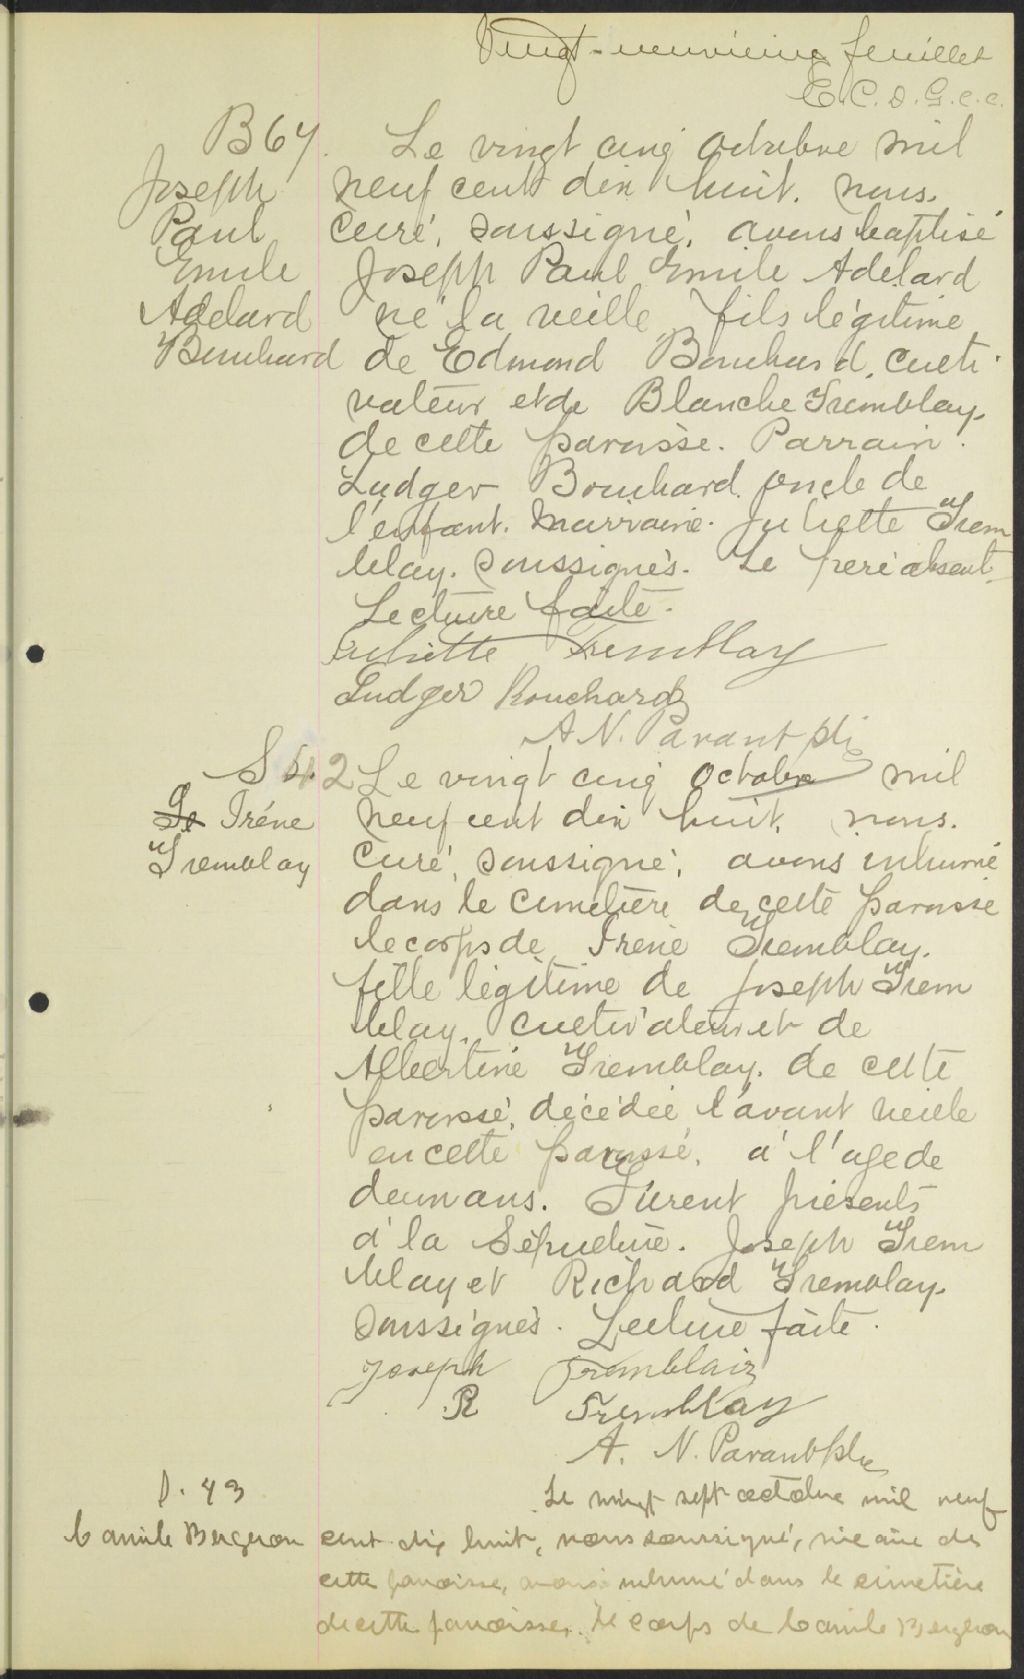 Vingt-neuvième feuillet
E.C.D.G.C.C.
B 67.
Joseph
Paul
Emile
Adelard
Bouchard
Le vingt cinq octobre mil
neuf cent dix huit. nous.
curé, soussigné, avons baptisé
Joseph Paul Emile Adelard
né la veille, fils légitime
de Edmond Bouchard, culti
vateur et de Blanche Tremblay.
de cette paroisse. Parrain.
Ludger Bouchard oncle de
l'enfant. Marraine. Juliette Trem
blay. soussignés. Le père absent.
Lecture faite.
Juliette Tremblay
Ludger Bouchard
A N. Parant ptre
S 42
Irène
Tremblay
Le vingt cinq octobre mil
neuf cent dix huit, nous.
curé, soussigné, avons inhumé
dans le cimetière de cette paroisse
le corps de Irène Tremblay.
fille légitime de Joseph Trem
blay, cultivateur et de
Albertine Tremblay. de cette
paroisse, décédée l'avant veille
en cette paroisse, à l'age de
deux ans. Furent présents
à la Sépulture. Joseph Trem
blay et Richard Tremblay.
soussignés. Lecture faite.
Joseph Tremblair
R Tremblay
A. N. Parant ptre
S. 43
Camile Bergeron
Le vingt sept octobre mil neuf
cent dix huit, nous soussigné, vicaire de
cette paroisse, avons inhumé dans le cimetière
de cette paroisse, le corps de Camile Bergeron